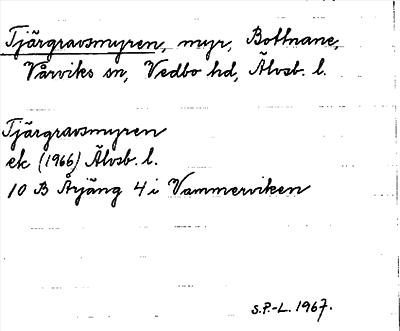 Tjärgravsmyren, myr, Bottnane,
Vårviks sn, Vedbo hd, Älvsb. l.
Tjärgravsmyren
ek (1966) Älvsb. l.
10 B Årjäng 4 i Vammerviken
S.P.-L. 1967.